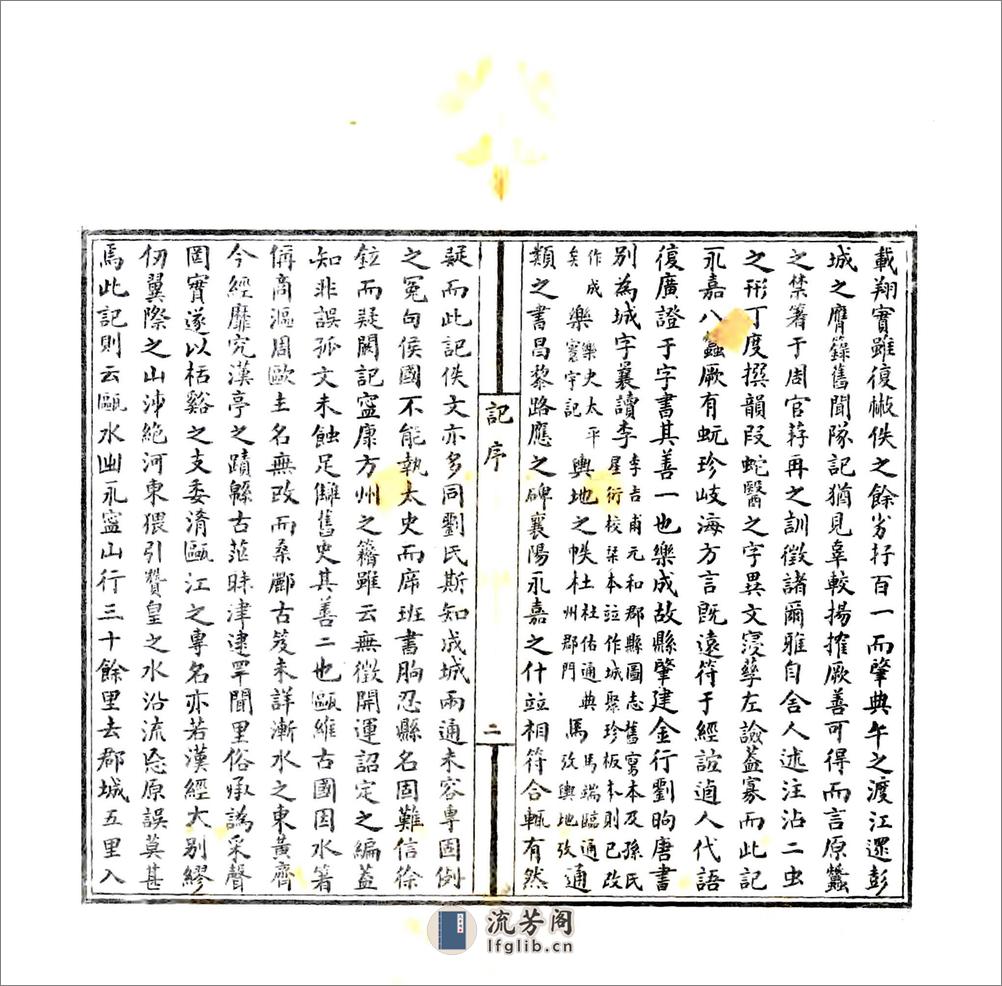 載翔實雖復㪚佚之餘劣扜百一而肇典午之渡江遝彭
城之膺籙舊聞隊記猶見辜較揚搉厥善可得而言原蠶
之禁箸于周官蕣再之訓徵諸爾雅自舍人述注沾二虫
之形丁度撰韻叚蛇醫之字異文寖孳左譣蓋寡而此記
永嘉八蠶厥有蚖珍岐海方言旣遠符于經詁逌人代語
復廣證于字書其善一也樂成故縣肇建金行劉昫唐書
別為城字襄讀李李吉甫元和郡縣圖志舊寫本及孫氏星衍校栞本竝作城聚珍板本則已改
作成矣樂樂史太平寰宇記輿地之帙杜杜佑通典州郡門馬馬端臨通攷輿地攷通
類之書昌黎路應之碑襄陽永嘉之什竝相符合輒有然
記序
二
疑而此記佚文亦多同劉氏斯知成城兩通未容專固例
之冤句侯國不能執太史而㡿班書朐忍縣名固難信徐
鉉而疑闕記寍康方州之籍雖云無徵開運詔定之編蓋
知非誤孤文未蝕足讎舊史其善二也甌維古國因水箸
偁商漚周歐主名無改而桑酈古笈未詳漸水之東黃齊
今經靡究漢亭之蹟緜古茫昧津逮罕聞里俗承譌采聲
罔實遂以栝谿之支委淆甌江之專名亦若漢經大別繆
仞翼際之山沛絶河東猥引贊皇之水沿流忘原誤莫甚
焉此記則云甌水出永寍山行三十餘里去郡城五里入
流芳阁
lfglib.cn